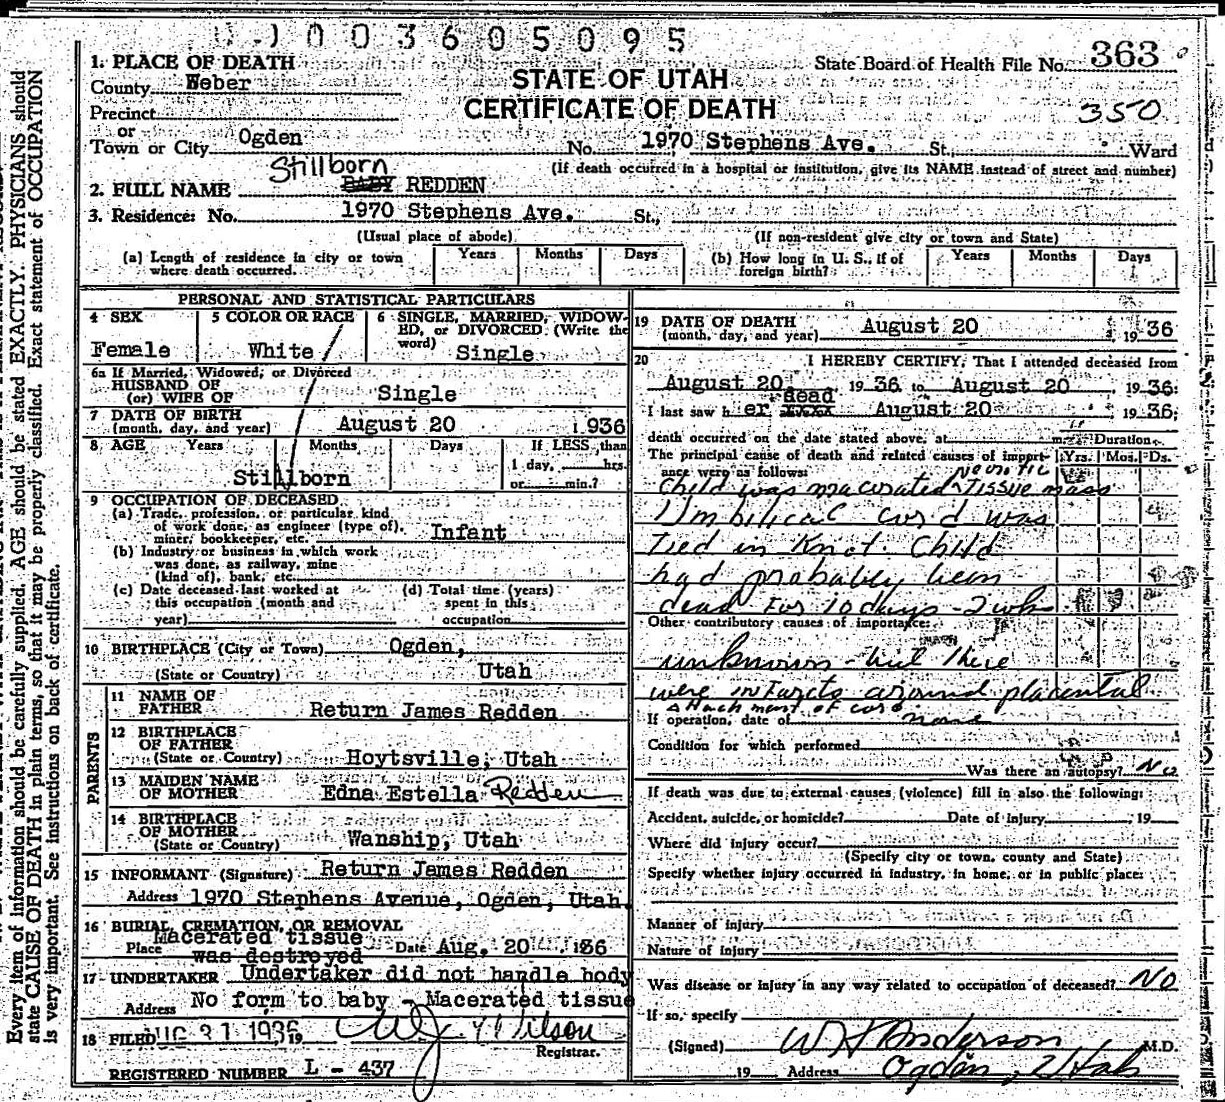 0 0 0 3 6 0 5 0 9 5
STATE OF UTAH
CERTIFICATE OF DEATH
State Board of Health File No. 363
350
1. PLACE OF DEATH
County Weber
Precinct
or
Town or City Ogden No. 1970 Stephens Ave. St., Ward
(If death occurred in a hospital or institution, give its NAME instead of street and number)
Stillborn
2. FULL NAME BABY REDDEN
3. Residence: No. 1970 Stephens Ave. St.,
(Usual place of abode) (If non-resident give city or town and State)
(a) Length of residence in city or town where death occurred. Years Months Days (b) How long in U. S., if of foreign birth? Years Months Days
PERSONAL AND STATISTICAL PARTICULARS
4 SEX 5 COLOR OR RACE 6 SINGLE, MARRIED, WIDOWED, or DIVORCED (Write the word)
Female White Single
6a If Married, Widowed, or Divorced
HUSBAND OF
(or) WIFE OF Single
7 DATE OF BIRTH
(month, day, and year) August 20 1936
8 AGE Years Months Days If LESS than
1 day, hrs.
or min.?
Stillborn
9 OCCUPATION OF DECEASED
(a) Trade, profession, or particular kind
of work done, as engineer (type of),
miner, bookkeeper, etc. Infant
(b) Industry or business in which work
was done, as railway, mine
(kind of), bank, etc.
(c) Date deceased last worked at
this occupation (month and
year)
(d) Total time (years)
spent in this
occupation
10 BIRTHPLACE (City or Town) Ogden,
(State or Country) Utah
PARENTS
11 NAME OF
FATHER Return James Redden
12 BIRTHPLACE
OF FATHER
(State or Country) Hoytsville, Utah
13 MAIDEN NAME
OF MOTHER Edna Estella Redden
14 BIRTHPLACE
OF MOTHER
(State or Country) Wanship, Utah
15 INFORMANT (Signature) Return James Redden
Address 1970 Stephens Avenue, Ogden, Utah.
16 BURIAL, CREMATION, OR REMOVAL
Place Macerated tissue was destroyed Date Aug. 20 1936
17 UNDERTAKER Undertaker did not handle body
Address No form to baby - Macerated tissue
18 FILED AUG 31 1936, 19 Wilson
Registrar.
REGISTERED NUMBER L - 437
19 DATE OF DEATH
(month, day, and year) August 20 1936
20 I HEREBY CERTIFY, That I attended deceased from
August 20, 1936 to August 20, 1936.
dead
I last saw her xxxx August 20 1936,
death occurred on the date stated above, at m. Duration
The principal cause of death and related causes of importance were as follows: Yrs. Mos. Ds.
necrotic
Child was macerated tissue mass
Umbilical cord was
Tied in Knot. Child
had probably been
dead For 10 days - 2 wk
Other contributory causes of importance:
unknown - but there
were infarcts around placental
attachment of cord
If operation, date of none
Condition for which performed
Was there an autopsy? No
If death was due to external causes (violence) fill in also the following:
Accident, suicide, or homicide? Date of injury, 19
Where did injury occur?
(Specify city or town, county and State)
Specify whether injury occurred in industry, in home, or in public place:
Manner of injury
Nature of injury
Was disease or injury in any way related to occupation of deceased? NO
If so, specify
(Signed) W H Anderson M.D.
19 Address Ogden, Utah
Every item of information should be carefully supplied. AGE should be stated EXACTLY. PHYSICIANS should
state CAUSE OF DEATH in plain terms, so that it may be properly classified. Exact statement of OCCUPATION
is very important. See instructions on back of certificate.